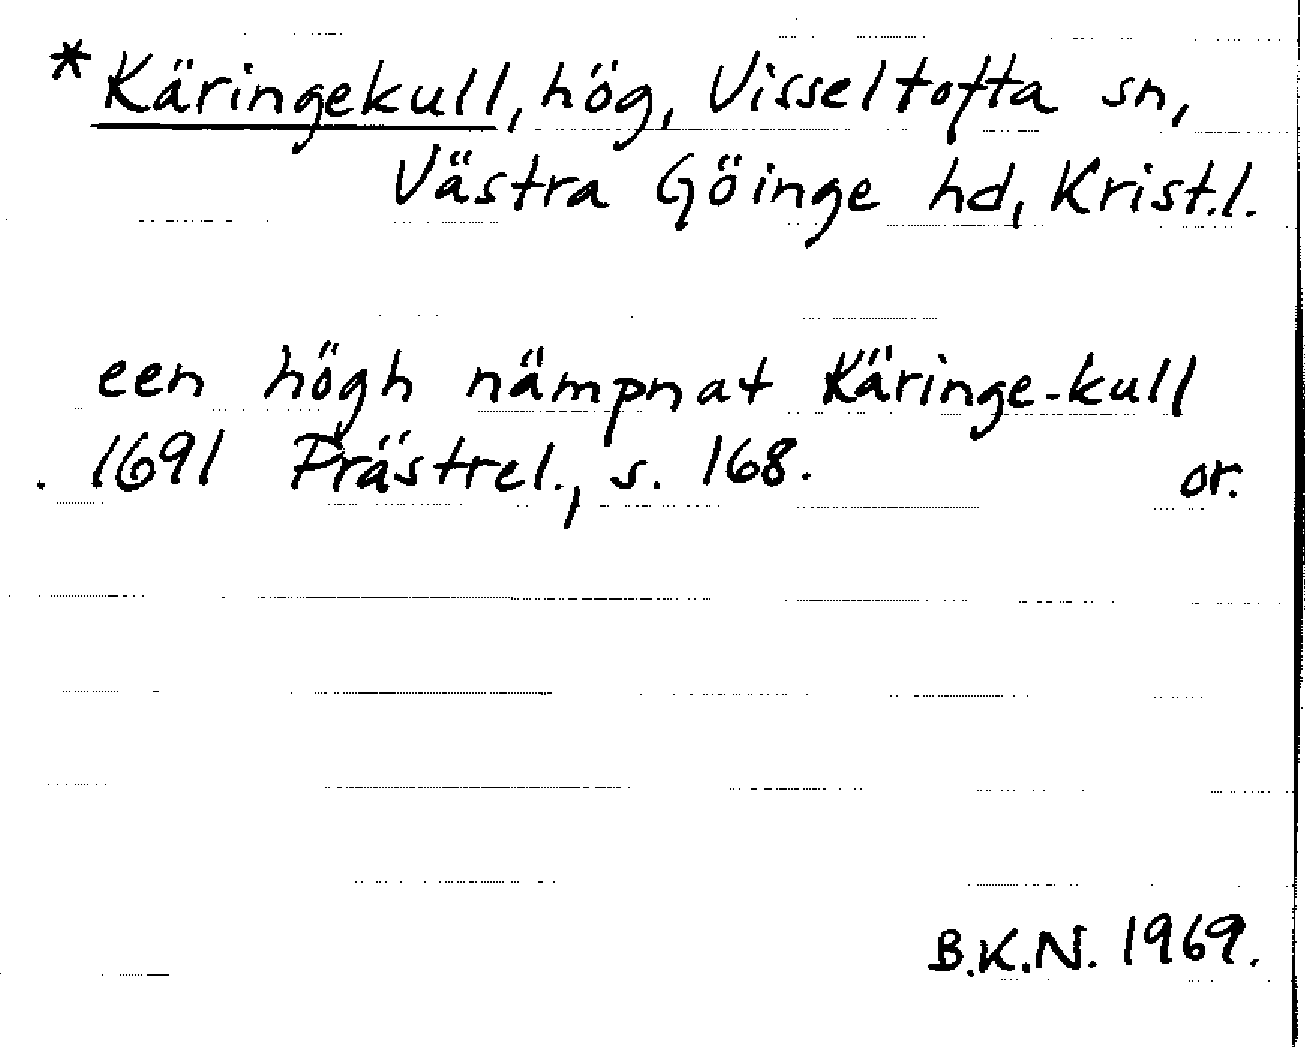 *Käringekull, hög, Visseltofta sn,
Västra Göinge hd, Krist.l.
een högh nämpnat Käringe-kull
1691 Prästrel., s. 168. or.
B.K.N. 1969.